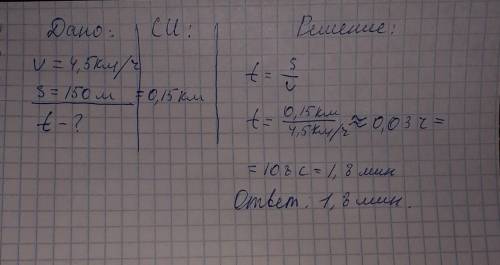 Дано: СИ: Решение:
v = 4,5 км/ч
s = 150 м = 0,15 км
t - ?
t = s/v
t = 0,15 км / 4,5 км/ч ≈ 0,03 ч =
= 108 с = 1,8 мин
Ответ. 1,8 мин.